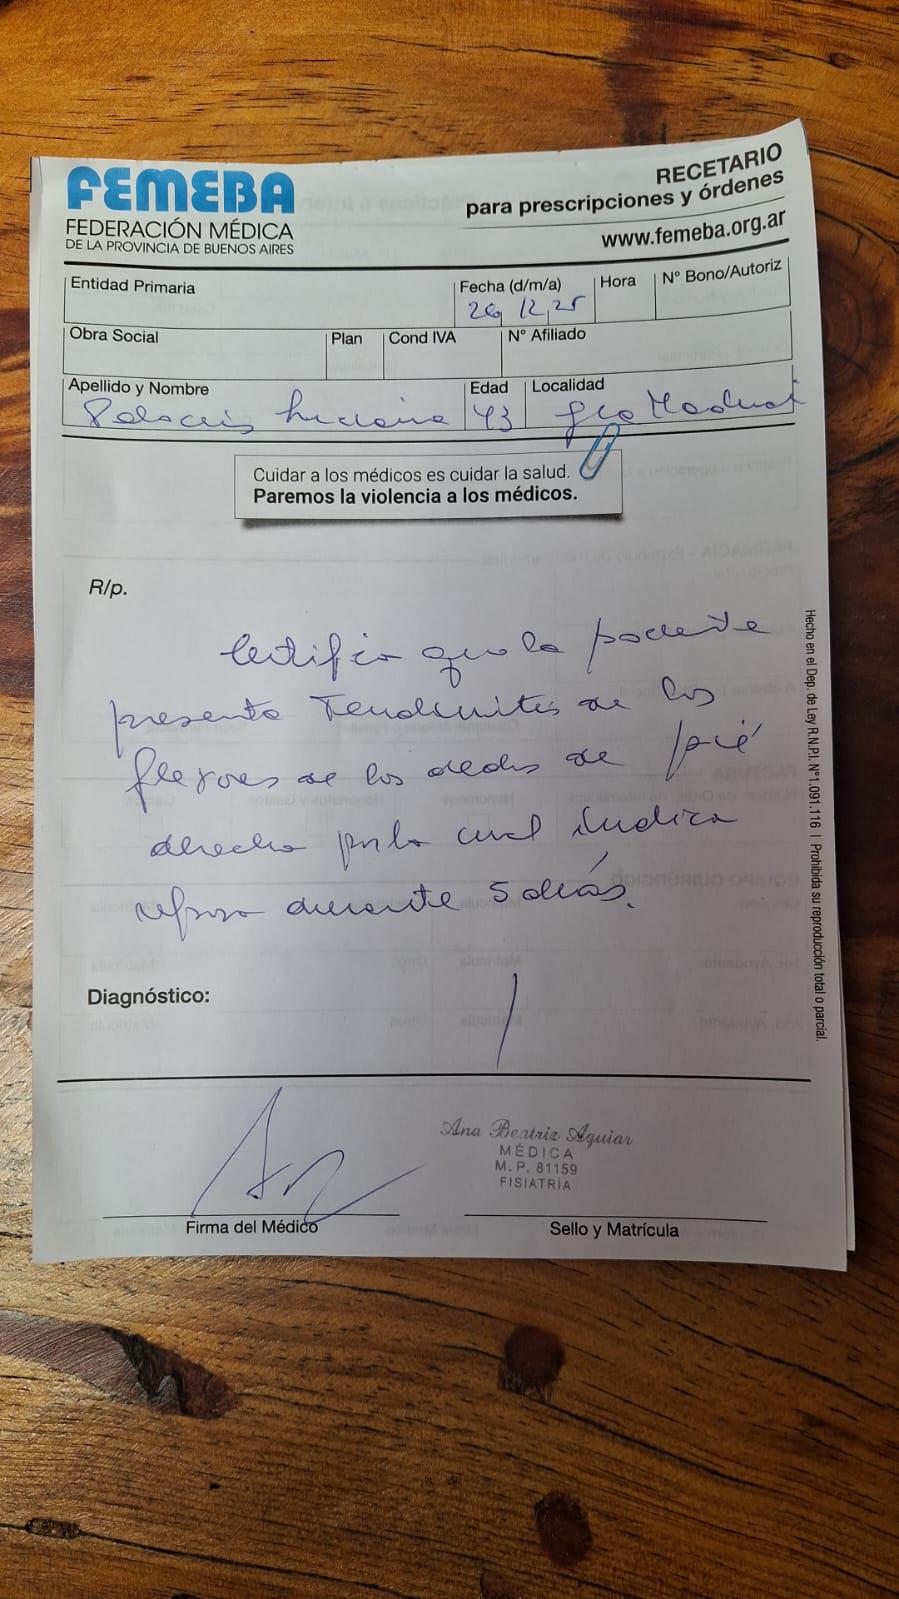 FEMEBA
FEDERACIÓN MÉDICA
DE LA PROVINCIA DE BUENOS AIRES
RECETARIO
para prescripciones y órdenes
www.femeba.org.ar
Entidad Primaria
Fecha (d/m/a)
Hora
N° Bono/Autoriz
26 12 25
Obra Social
Plan
Cond IVA
N° Afiliado
Apellido y Nombre
Edad
Localidad
43
Cuidar a los médicos es cuidar la salud.
Paremos la violencia a los médicos.
R/p.
Certifico que la paciente
presenta Tendinitis de los
flexores de los dedos de pié
derecho por lo cual indico
reposo durante 5 días.
Diagnóstico:
Ana Beatriz Aguiar
MÉDICA
M.P. 81159
FISIATRÍA
Firma del Médico
Sello y Matrícula
Hecho en el Dep. de Ley R.N.P.I. N°1.091.116 | Prohibida su reproducción total o parcial.